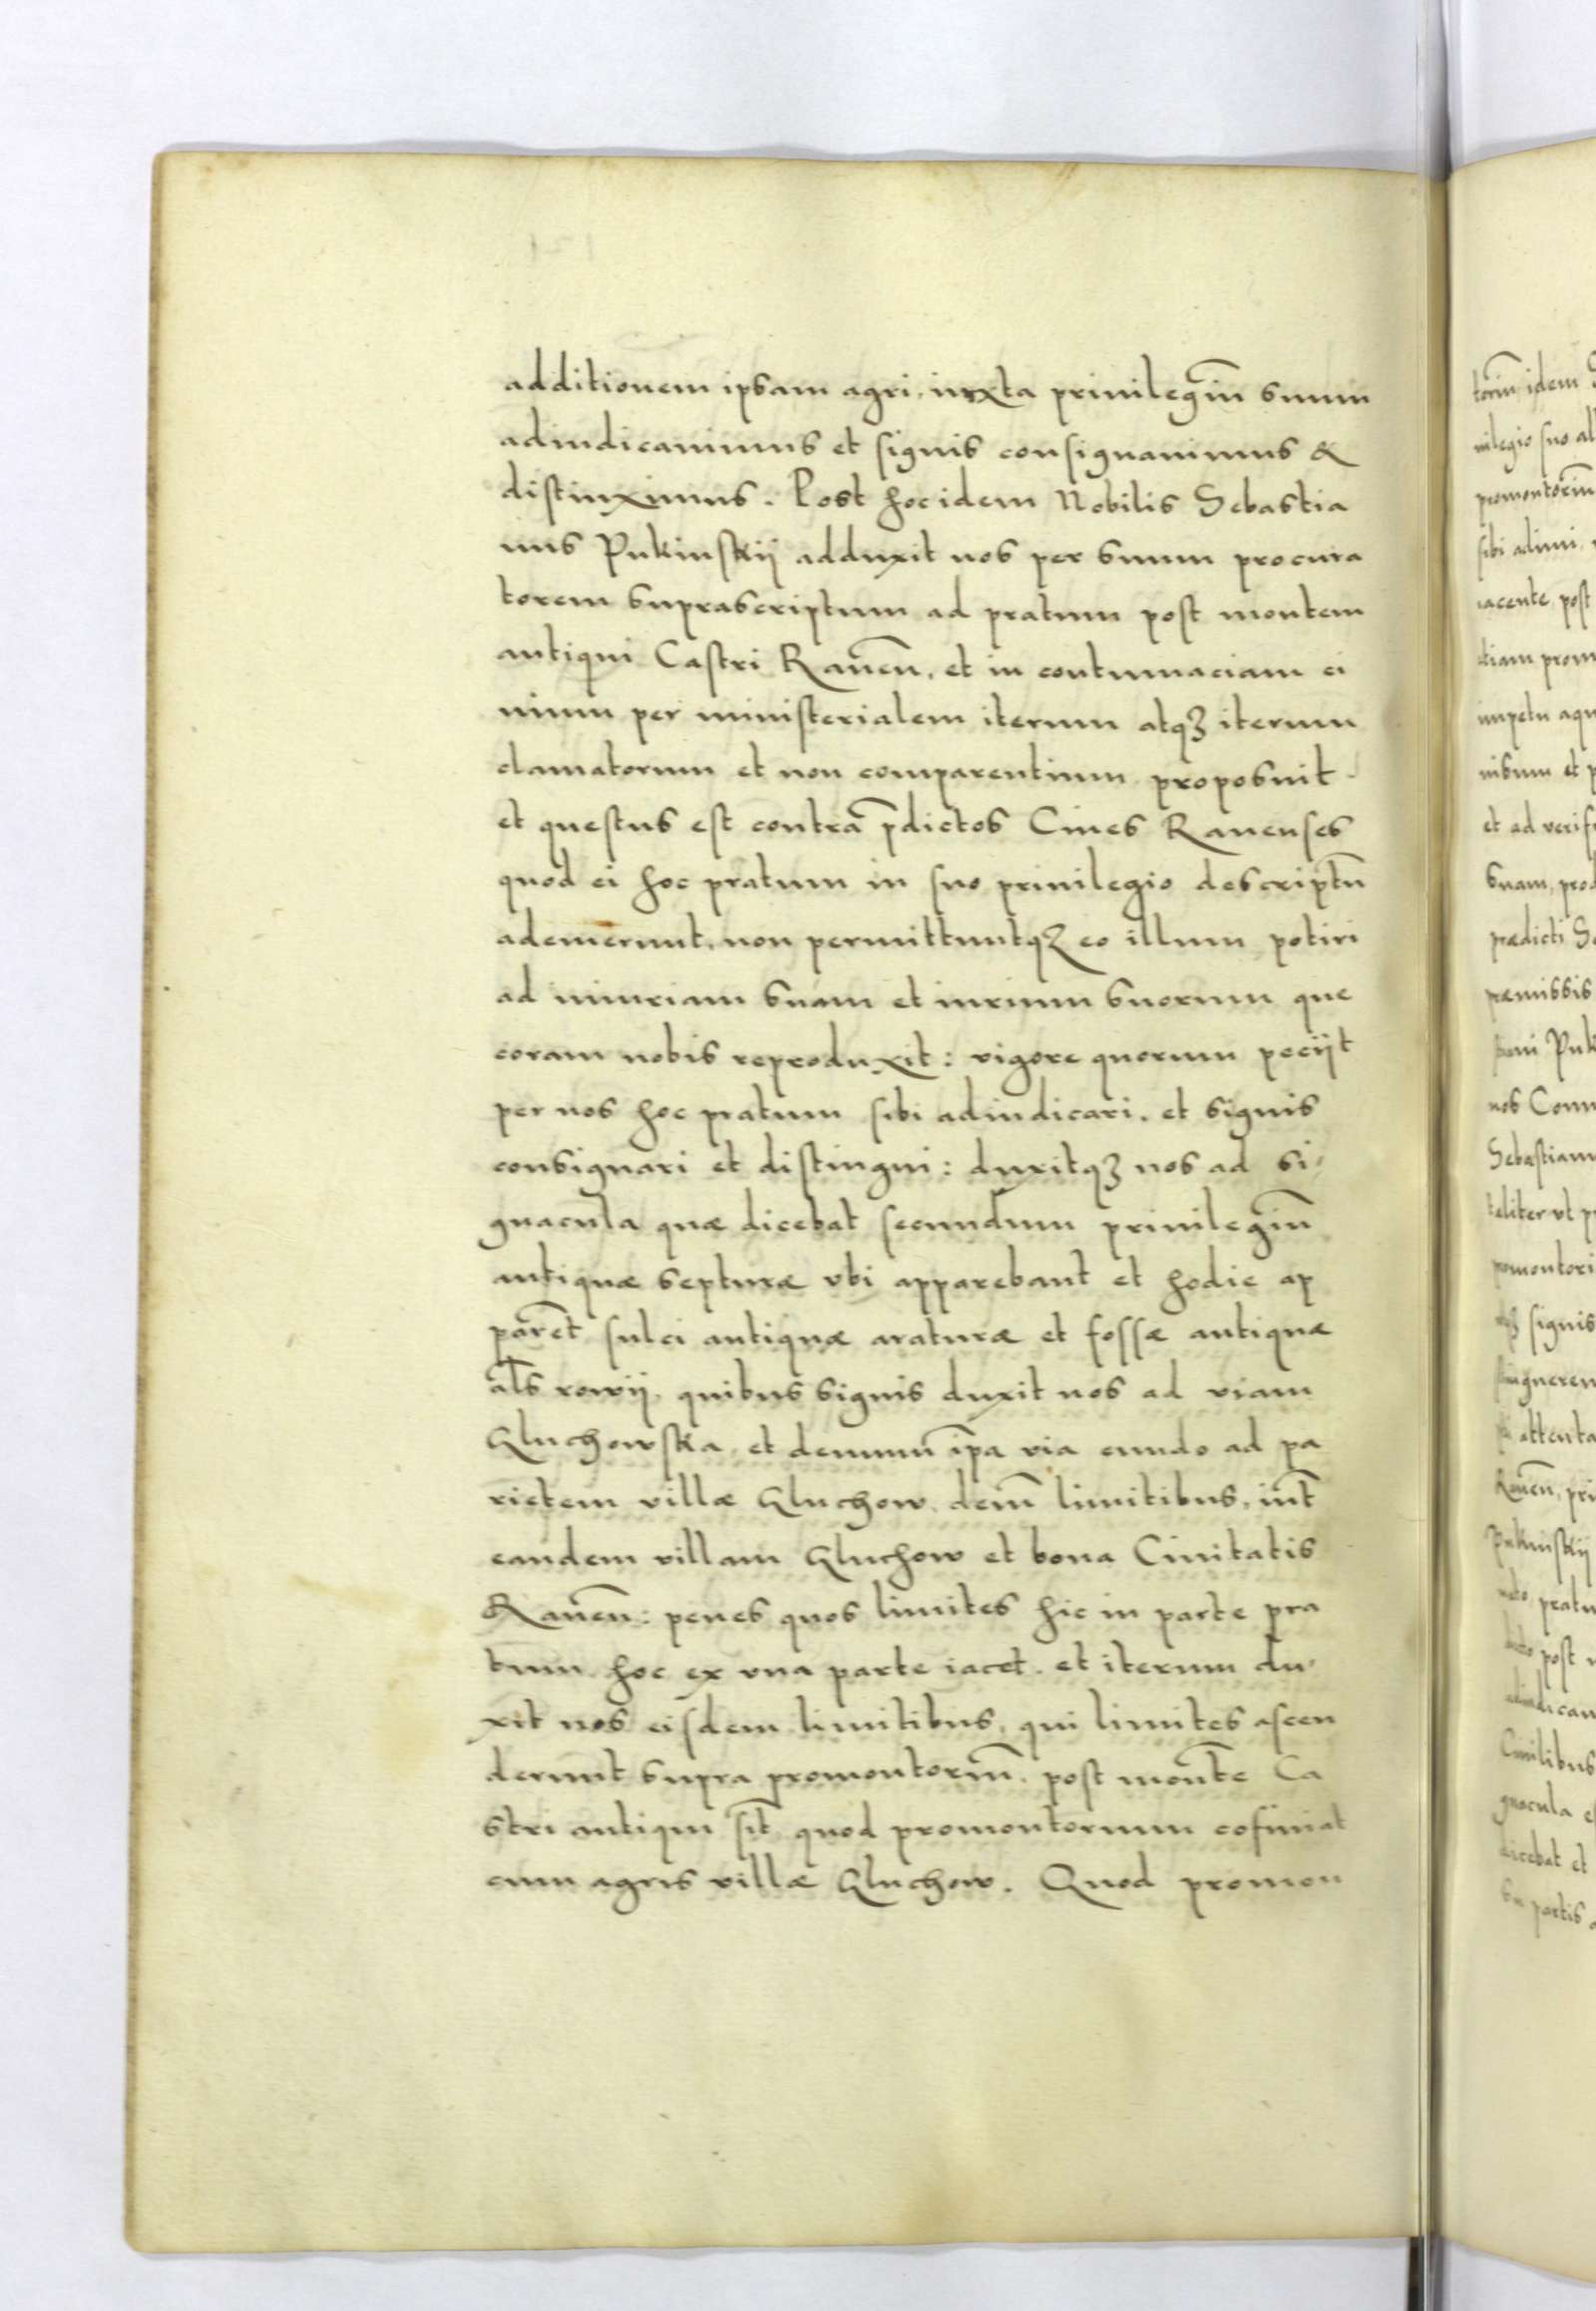 additionem ipsam agri, iuxta priuilegiū suum
adiudicauimus et signis consignauimus &
distinximus. Post hoc idem Nobilis Sebastia
nus Pukinskij adduxit nos per suum procura
torem suprascriptum ad pratum post montem
antiqui Castri Raueñ, et in contumaciam ci
uium per ministerialem iterum atqꝫ iterum
clamatorum et non comparentium proposuit
et questus est contra p̄dictos Ciues Rauenses
quod ei hoc pratum in suo priuilegio descriptū
ademerunt, non permittuntqꝫ eo illum potiri
ad iniuriam suam et iurium suorum que
coram nobis reproduxit: vigore quorum peciit
per nos hoc pratum sibi adiudicari, et signis
consignari et distingui: duxitqꝫ nos ad si,
gnacula quæ dicebat secundum priuilegiū
antiquæ septuræ vbi apparebant et hodie ap
parēt sulci antiquæ araturæ et fossæ antiquæ
al̄s rowij, quibus signis duxit nos ad viam
Gluchowska, et demum īpa via eundo ad pa
rietem villæ Gluchow, dem̄ limitibus, int̄
eandem villam Gluchow et bona Ciuitatis
Raueñ: penes quos limites hic in parte pra
tum hoc ex vna parte iacet. et iterum du,
xit nos eisdem limitibus, qui limites ascen
derunt supra promontoriū. post montē Ca
stri antiqui sit̄, quod promontorium cōfiniat
cum agris villæ Gluchow. Quod promon
toriū idem
uilegio suo al
promontoriū
sibi adimi,
iacente post
impetu aqu
et ad verif
suam, prod
prædicti Se
præmissis
nos Comm
Sebastianu
taliter vt p
signis
Raueñ, pri
Pukinskij
post
Ciuilibus
gnacula
dicebat et
partis